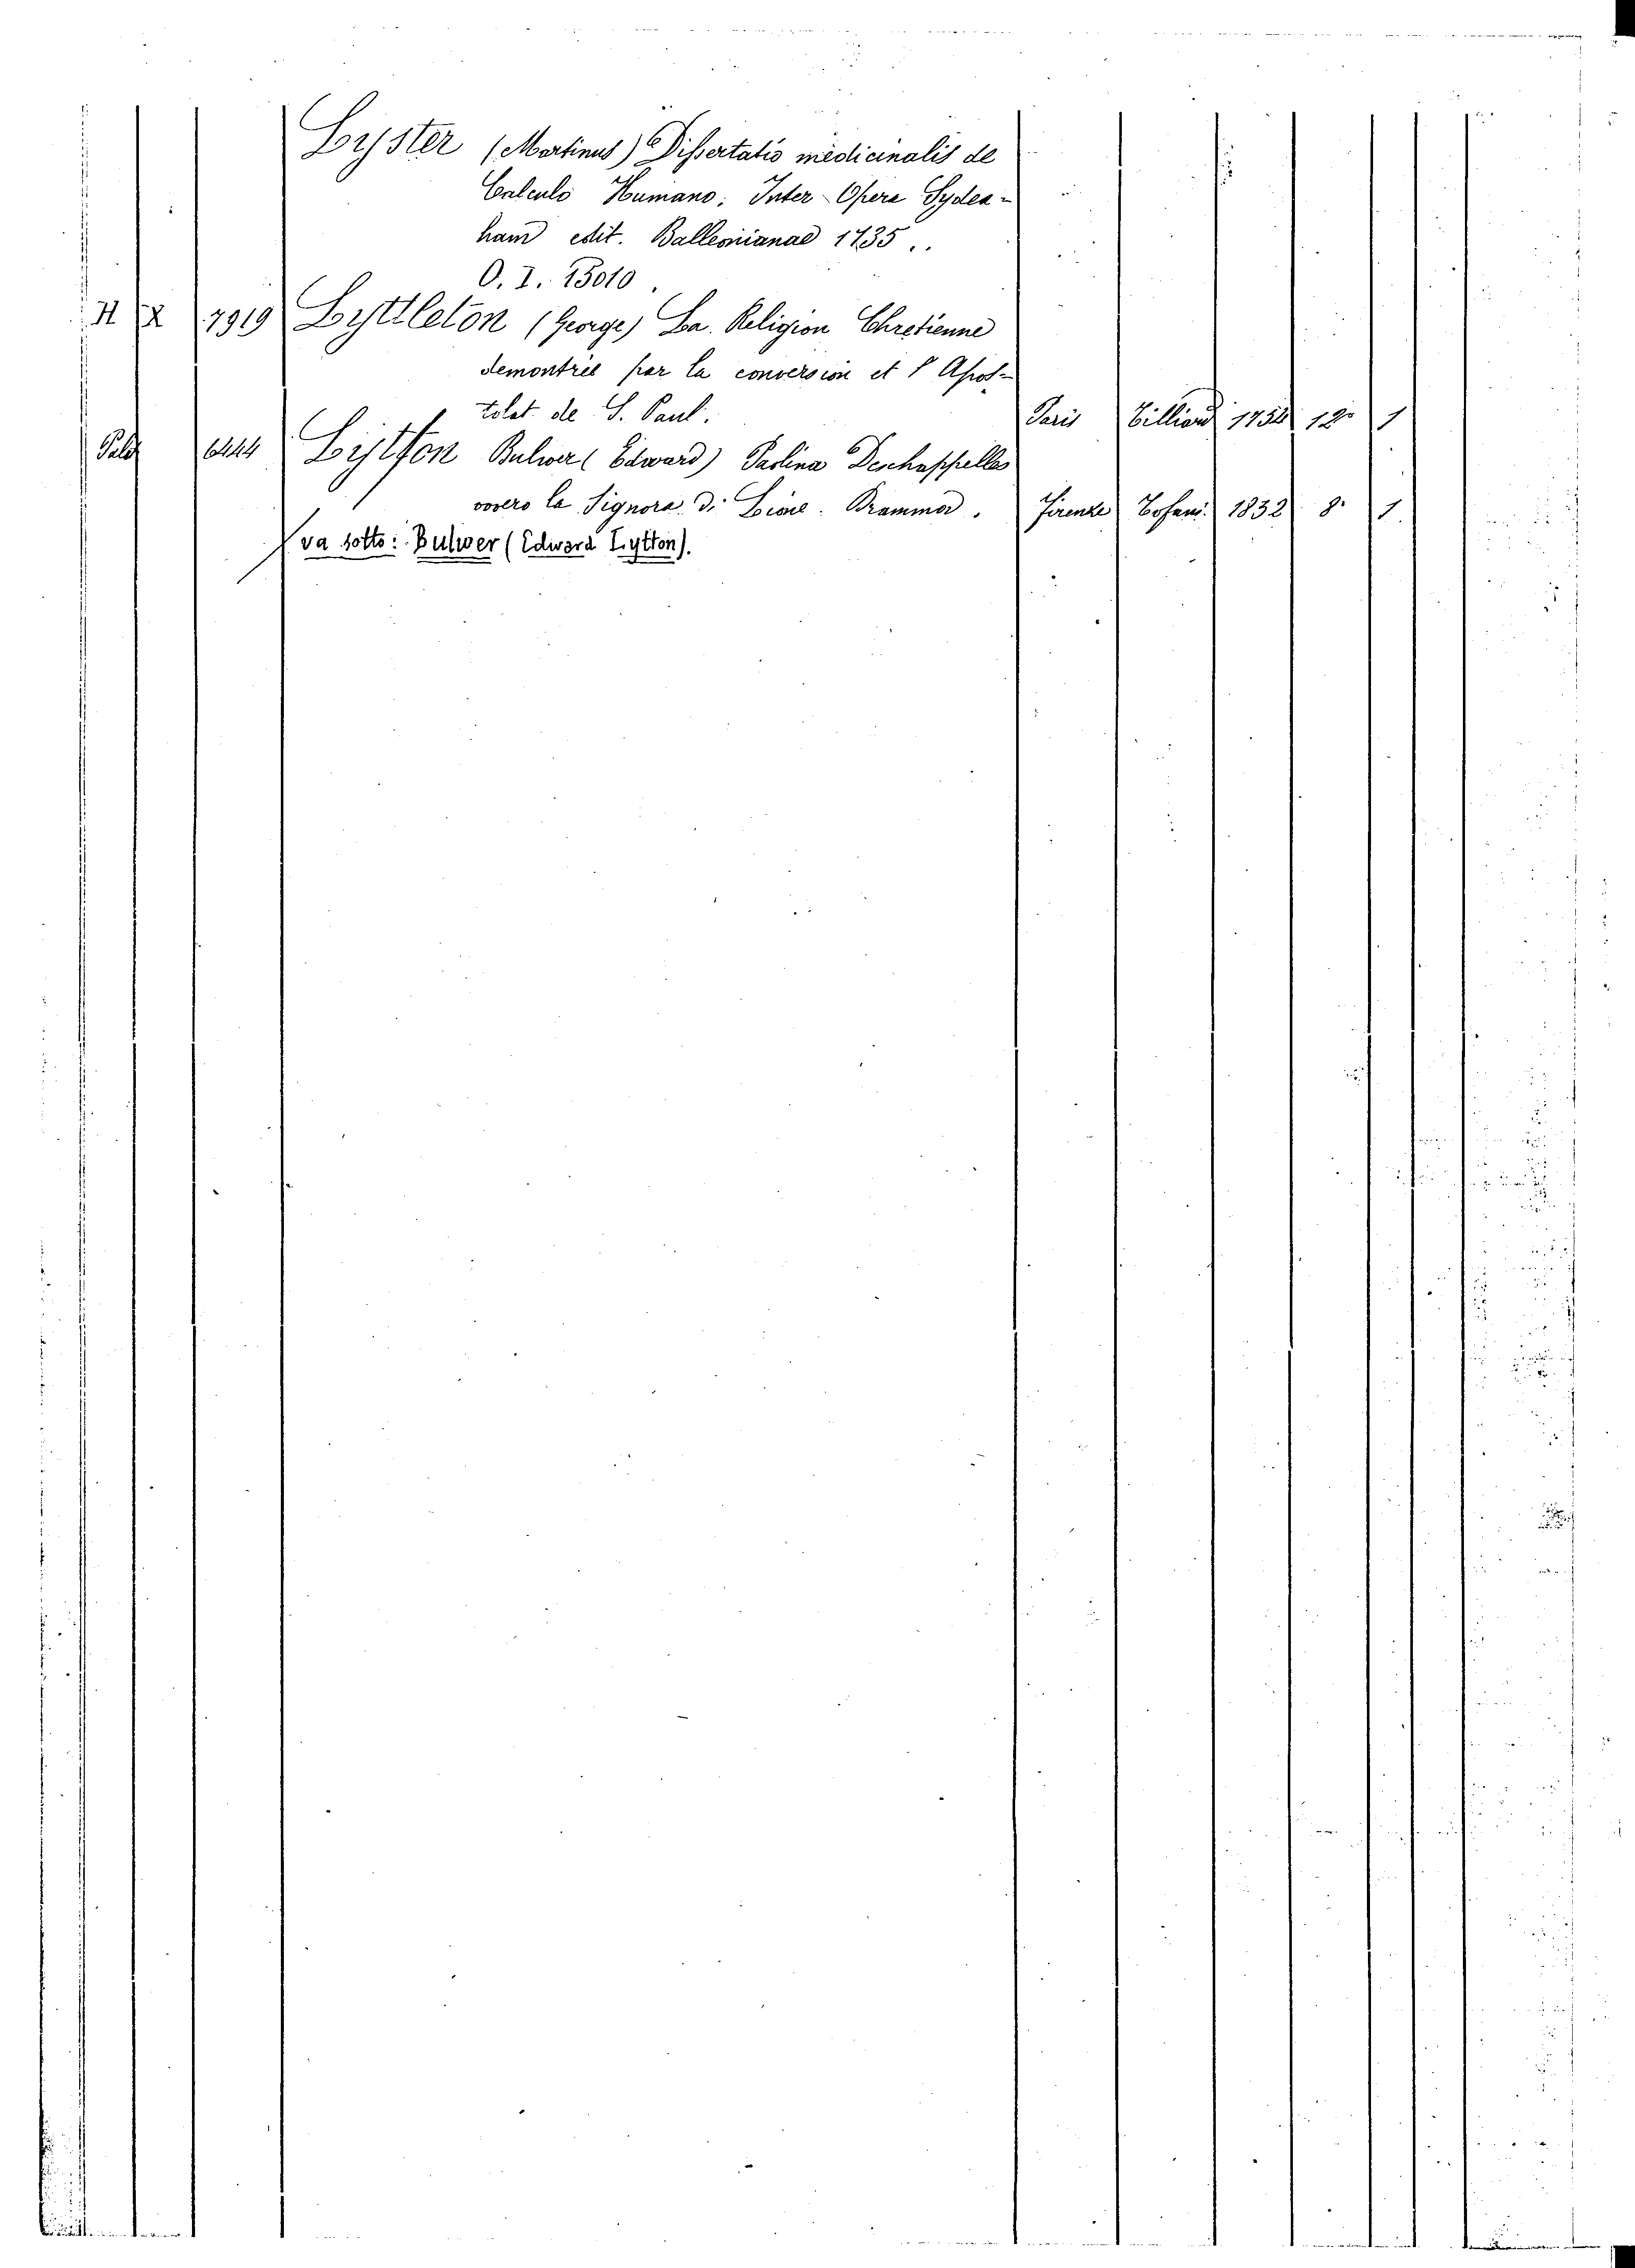 Lyster (Martinus) Dissertatio medicinalis de
Calculo Humano; Inter Opera Syden-
ham edit. Balleonianae 1735..
O. I. 15010.
II X 7919 Lyttleton (George) La Religion Chretienne
demontrée par la conversion et l'Apos-
tolat de S. Paul. Paris Tilliard 1754 12° 1
6444 Lytton Bulwer (Edward) Paolina Deschappelles
ovvero la Signora di Lione. Dramma. Firenze Tofani 1832 8° 1
va sotto: Bulwer (Edward Lytton).